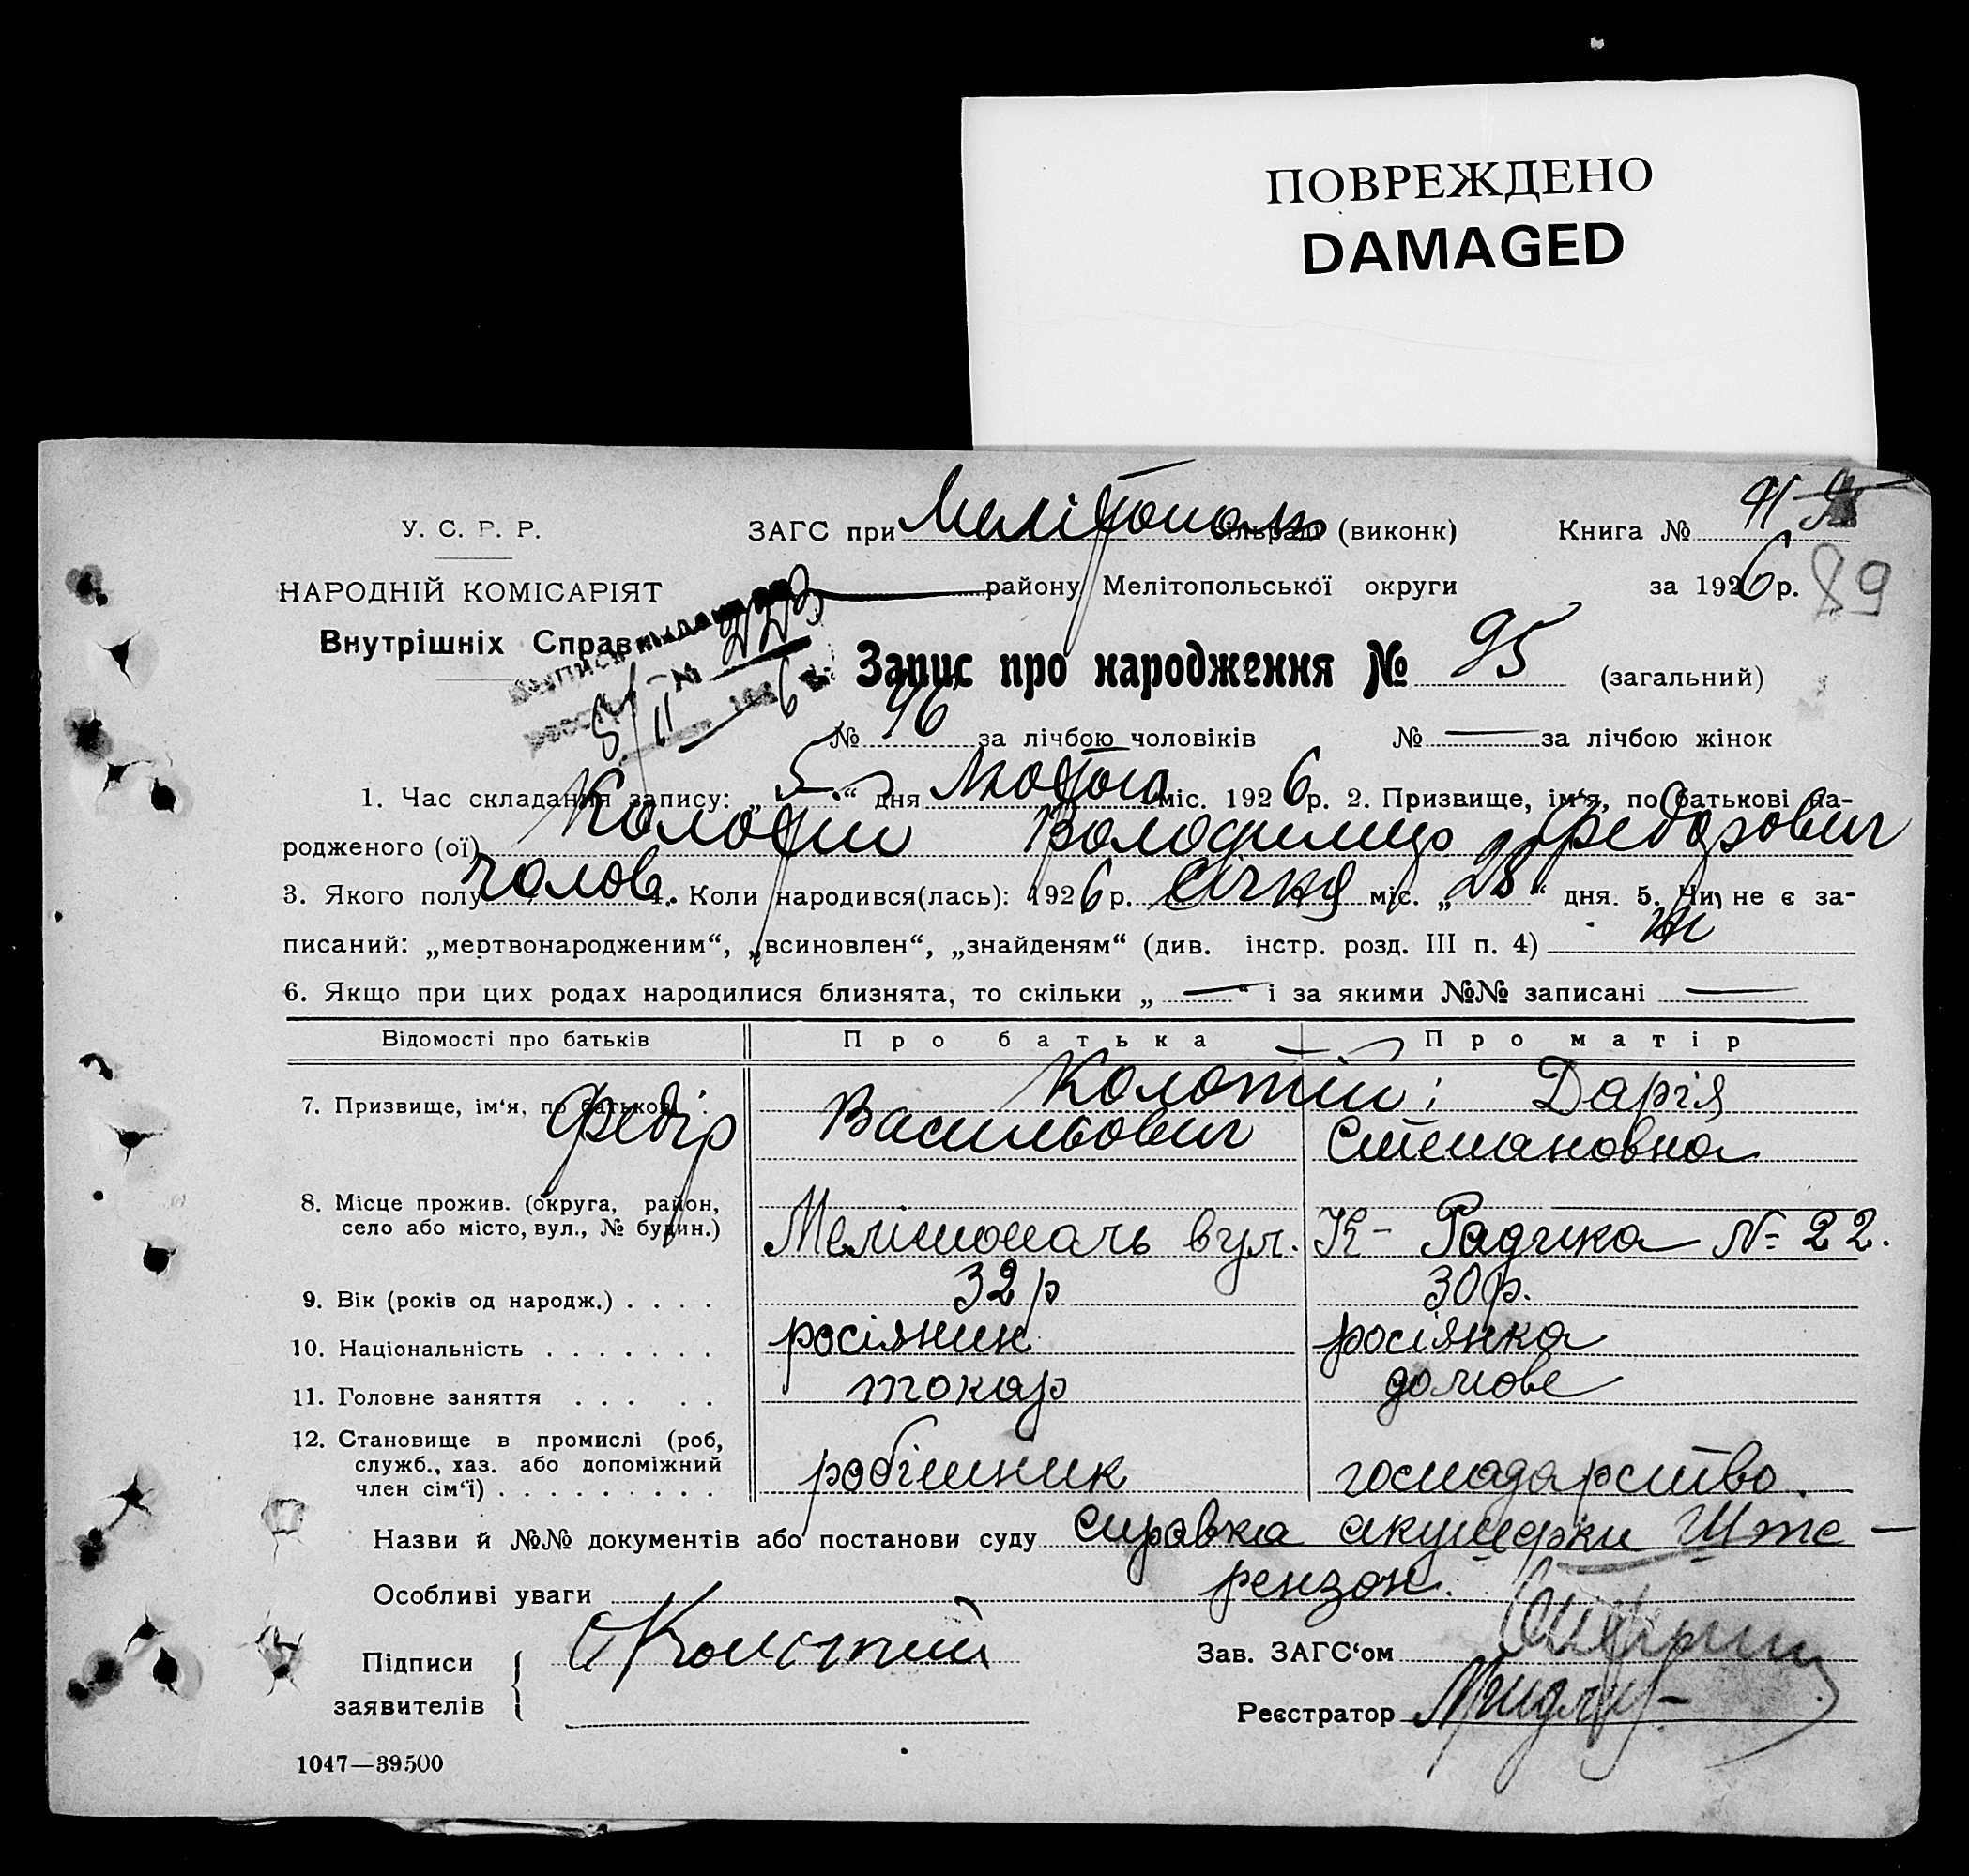 ПОВРЕЖДЕНО
DAMAGED
У. С. Р. Р. ЗАГС при Мелітополь сільраді (виконк) Книга №
НАРОДНІЙ КОМІСАРІЯТ району Мелітопольської округи за 1926 р. 89
Внутрішніх Справ
Выпись выдана № 273
5/II 1926 г.
Запис про народження № 95 (загальний)
№ 46 за лічбою чоловіків № — за лічбою жінок
1. Час складання запису: „5“ дня Лютого міс. 1926 р. 2. Призвище, ім‘я, по батькові на-
родженого (ої) Колотій Володимир Федорович
3. Якого полу чолов. 4. Коли народився(лась): 1926 р. Січня міс. „28“ дня. 5. Чи не є за-
писаний: „мертвонародженим“, „всиновлен“, „знайденям“ (див. інстр. розд. III п. 4) ні
6. Якщо при цих родах народилися близнята, то скільки „—“ і за якими №№ записані —
Відомості про батьків Про батька Про матір
7. Призвище, ім‘я, по батькові Колотій; Дарія
Федір Васильович Степановна
8. Місце прожив. (округа, район,
село або місто, вул., № будин.) Мелітополь вул. К- Радчка № 22.
9. Вік (років од народж.) . . . . 32 р 30 р.
10. Національність . . . . . . . росіянин росіянка
11. Головне заняття . . . . . токар домове
12. Становище в промислі (роб,
служб., хаз. або допоміжний
член сім‘ї) . . . . . . . . . робітник господарство.
Назви й №№ документів або постанови суду справка акушерки Ште-
Особливі уваги рензон.
Підписи Колотий Зав. ЗАГС‘ом
заявителів Реєстратор
1047—39500